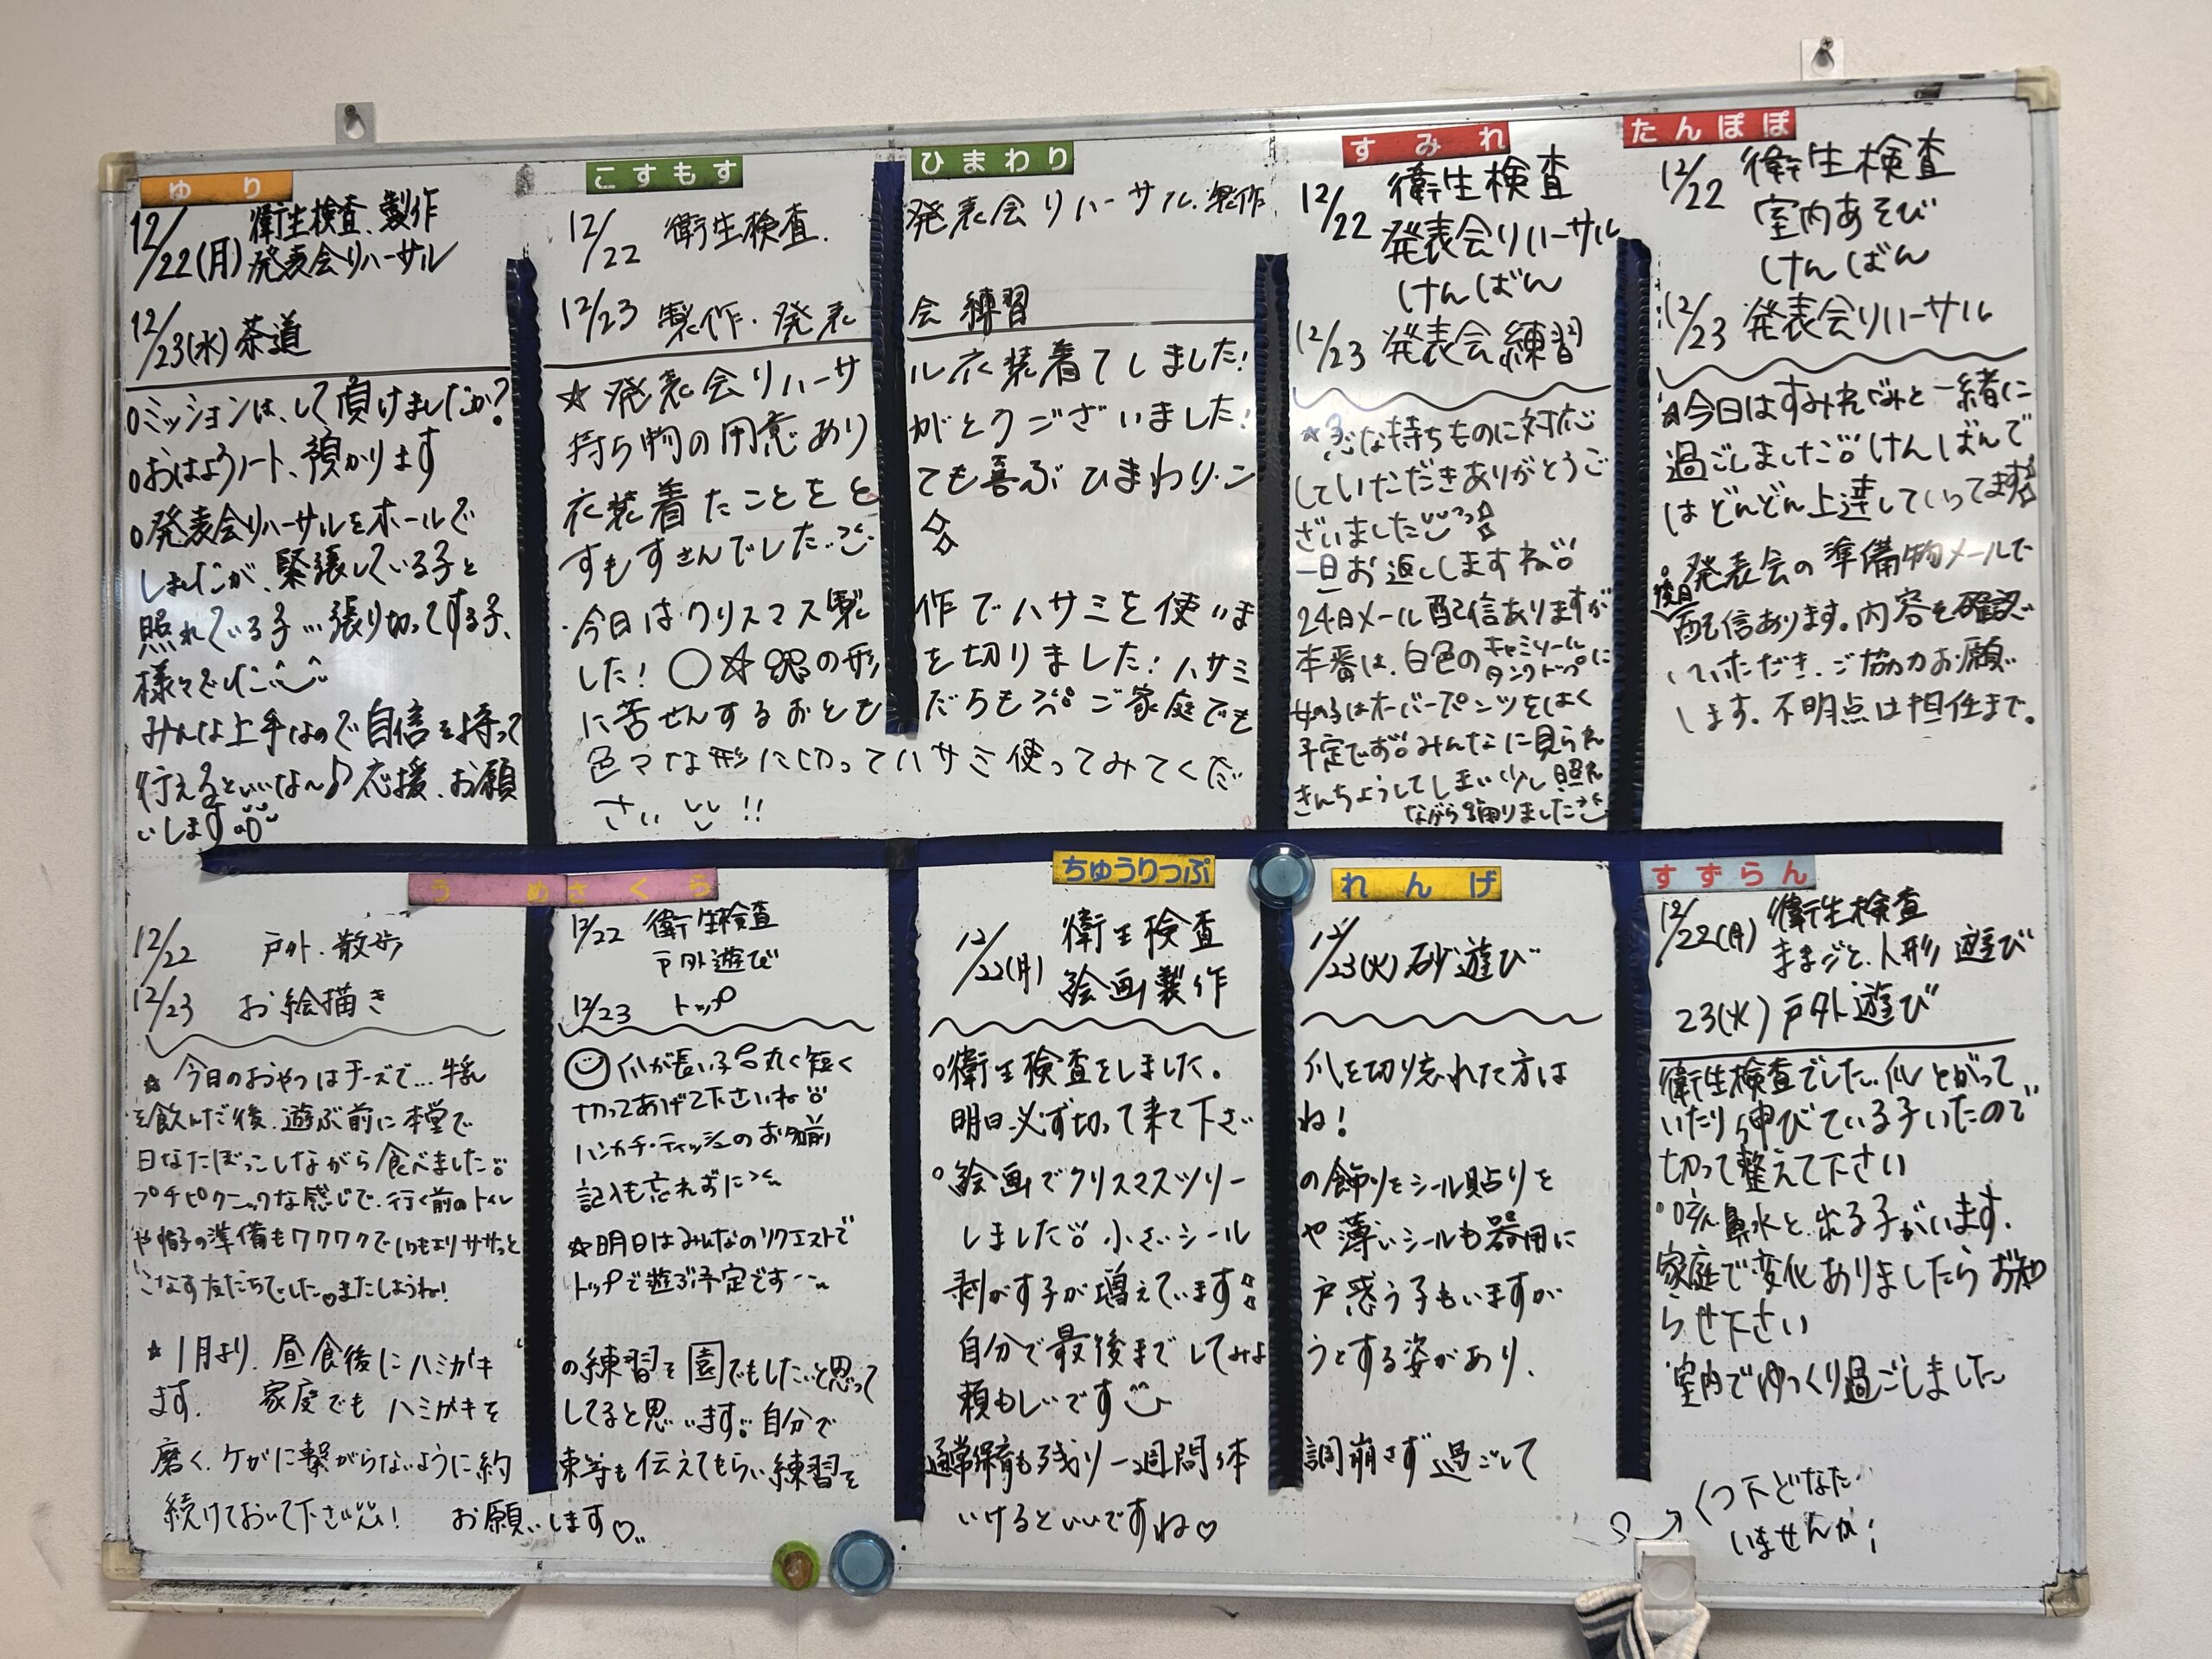 ゆり
12/22(月) 衛生検査、製作
発表会リハーサル
12/23(水) 茶道
○ミッションは、して頂けましたか?
○おはようノート、預かります
○発表会リハーサルをホールで
しましたが、緊張している子と
照れている子…張り切ってする子、
様々でした
みんな上手なので自信を持って
行えるといいな〜♪応援、お願
いします
こすもす ひまわり
12/22 衛生検査. 発表会リハーサル. 製作
12/23 製作・発表会 練習
☆発表会リハーサル衣装着てしました!
持ち物の用意ありがとうございました!
衣装着たことをとても喜ぶひまわり・こ
すもすさんでした
・今日はクリスマス製作でハサミを使いま
した! ○☆の形を切りました! ハサミ
に苦せんするおともだちも ご家庭でも
色々な形に切ってハサミ使ってみてくだ
さい!!
すみれ
12/22 衛生検査
発表会リハーサル
けんばん
12/23 発表会練習
☆急な持ちものに対応
していただきありがとうご
ざいました
一旦お返ししますね
24日メール配信ありますが
本番は、白色のキャミソール タンクトップに
女の子はオーバーパンツをはく
予定です みんなに見られ
きんちょうしてしまい少し照れ
ながら踊りました
たんぽぽ
12/22 衛生検査
室内あそび
けんばん
12/23 発表会リハーサル
☆今日はすみれぐみと一緒に
過ごしました けんばんで
はどんどん上達していってます
。発表会の準備物メールで
後日
配信あります。内容を確認
いただき、ご協力お願い
します。不明点は担任まで。
うめ さくら
12/22 戸外・散歩
12/23 お絵描き
☆今日のおやつはチーズで…牛乳
を飲んだ後、遊ぶ前に本堂で
日なたぼっこしながら食べました
プチピクニックな感じで、行く前のトイレ
や帽子の準備もワクワクでいつもよりササっと
こなす友だちでした。またしようね!
12/22 衛生検査
戸外遊び
12/23 トップ
爪が長い子 丸く短く
切ってあげて下さいね
ハンカチ・ティッシュのお名前
記入も忘れずに
☆明日はみんなのリクエストで
トップで遊ぶ予定です
☆1月より、昼食後にハミガキの練習を園でもしたいと思って
ます. 家庭でもハミガキをしてると思います 自分で
磨く、ケガに繋がらないように約束等も伝えてもらい練習を
続けておいて下さい! お願いします♡
ちゅうりっぷ れんげ
12/22(月) 衛生検査
絵画製作
12/23(火) 砂遊び
○衛生検査をしました。爪を切り忘れた方は
明日必ず切って来て下さいね!
○絵画でクリスマスツリーの飾りをシール貼りを
しました 小さいシールや薄いシールも器用に
剥がす子が増えています 戸惑う子もいますが
自分で最後までしてみようとする姿があり、
頼もしいです
通常保育も残り一週間 体調崩さず過ごして
いけるといいですね♡
すずらん
12/22(月) 衛生検査
ままごと、人形遊び
23(火) 戸外遊び
衛生検査でした、爪とがって
いたり、伸びている子いたので
切って整えて下さい
・咳、鼻水と、出る子がいます.
家庭で変化ありましたらお知
らせ下さい
室内でゆっくり過ごしました
くつ下どなたか
いませんか!